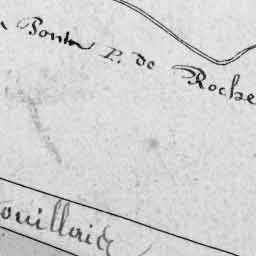 Bonin P. de Roche
ouillaid